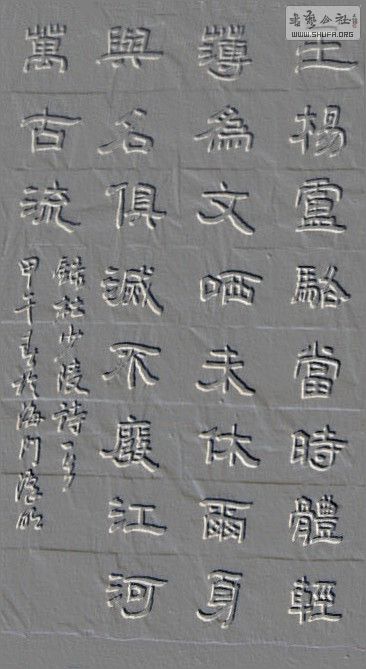 王楊盧駱當時體輕
薄為文哂未休爾身
與名俱滅不廢江河
萬古流
錄杜少陵詩一首
甲午春於海門
書藝公社
WWW.SHUFA.ORG